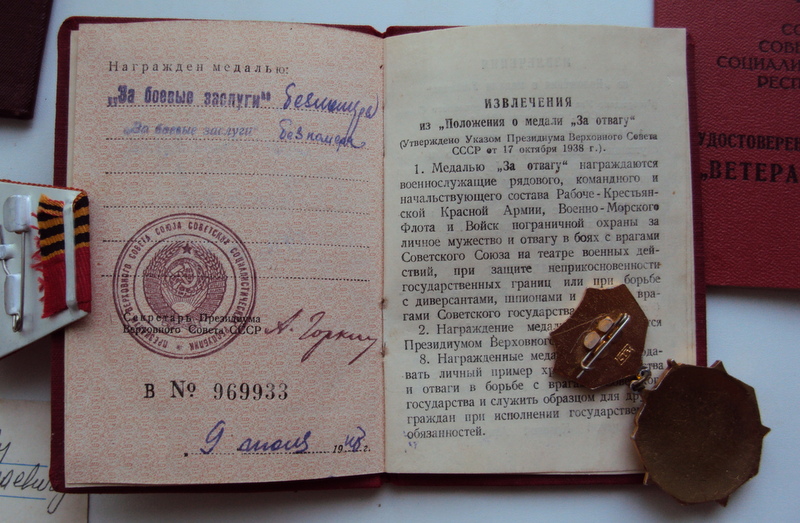 Награжден медалью:
„За боевые заслуги“ без номера
„За боевые заслуги“ без номера
ВЕРХОВНОГО СОВЕТА СОЮЗА СОВЕТСКИХ СОЦИАЛИСТИЧЕСКИХ
Секретарь Президиума
Верховного Совета СССР А. Горкин
В № 969933
9 июля 194
ИЗВЛЕЧЕНИЯ
из „Положения о медали „За отвагу“
(Утверждено Указом Президиума Верховного Совета
СССР от 17 октября 1938 г.).
1. Медалью „За отвагу“ награждаются
военнослужащие рядового, командного и
начальствующего состава Рабоче-Крестьян-
ской Красной Армии, Военно-Морского
Флота и Войск пограничной охраны за
личное мужество и отвагу в боях с врагами
Советского Союза на театре военных дей-
ствий, при защите неприкосновенности
государственных границ или при борьбе
с диверсантами, шпионами и вра-
гами Советского государства
2. Награждение медал ся
Президиумом Верховного
8. Награжденные меда да-
вать личный пример хр ства
и отваги в борьбе с враг
государства и служить образцом для др
граждан при исполнении государстве
обязанностей.
СО
СОВЕ
СОЦИАЛИ
РЕСП
УДОСТОВЕРЕН
„ВЕТЕРА